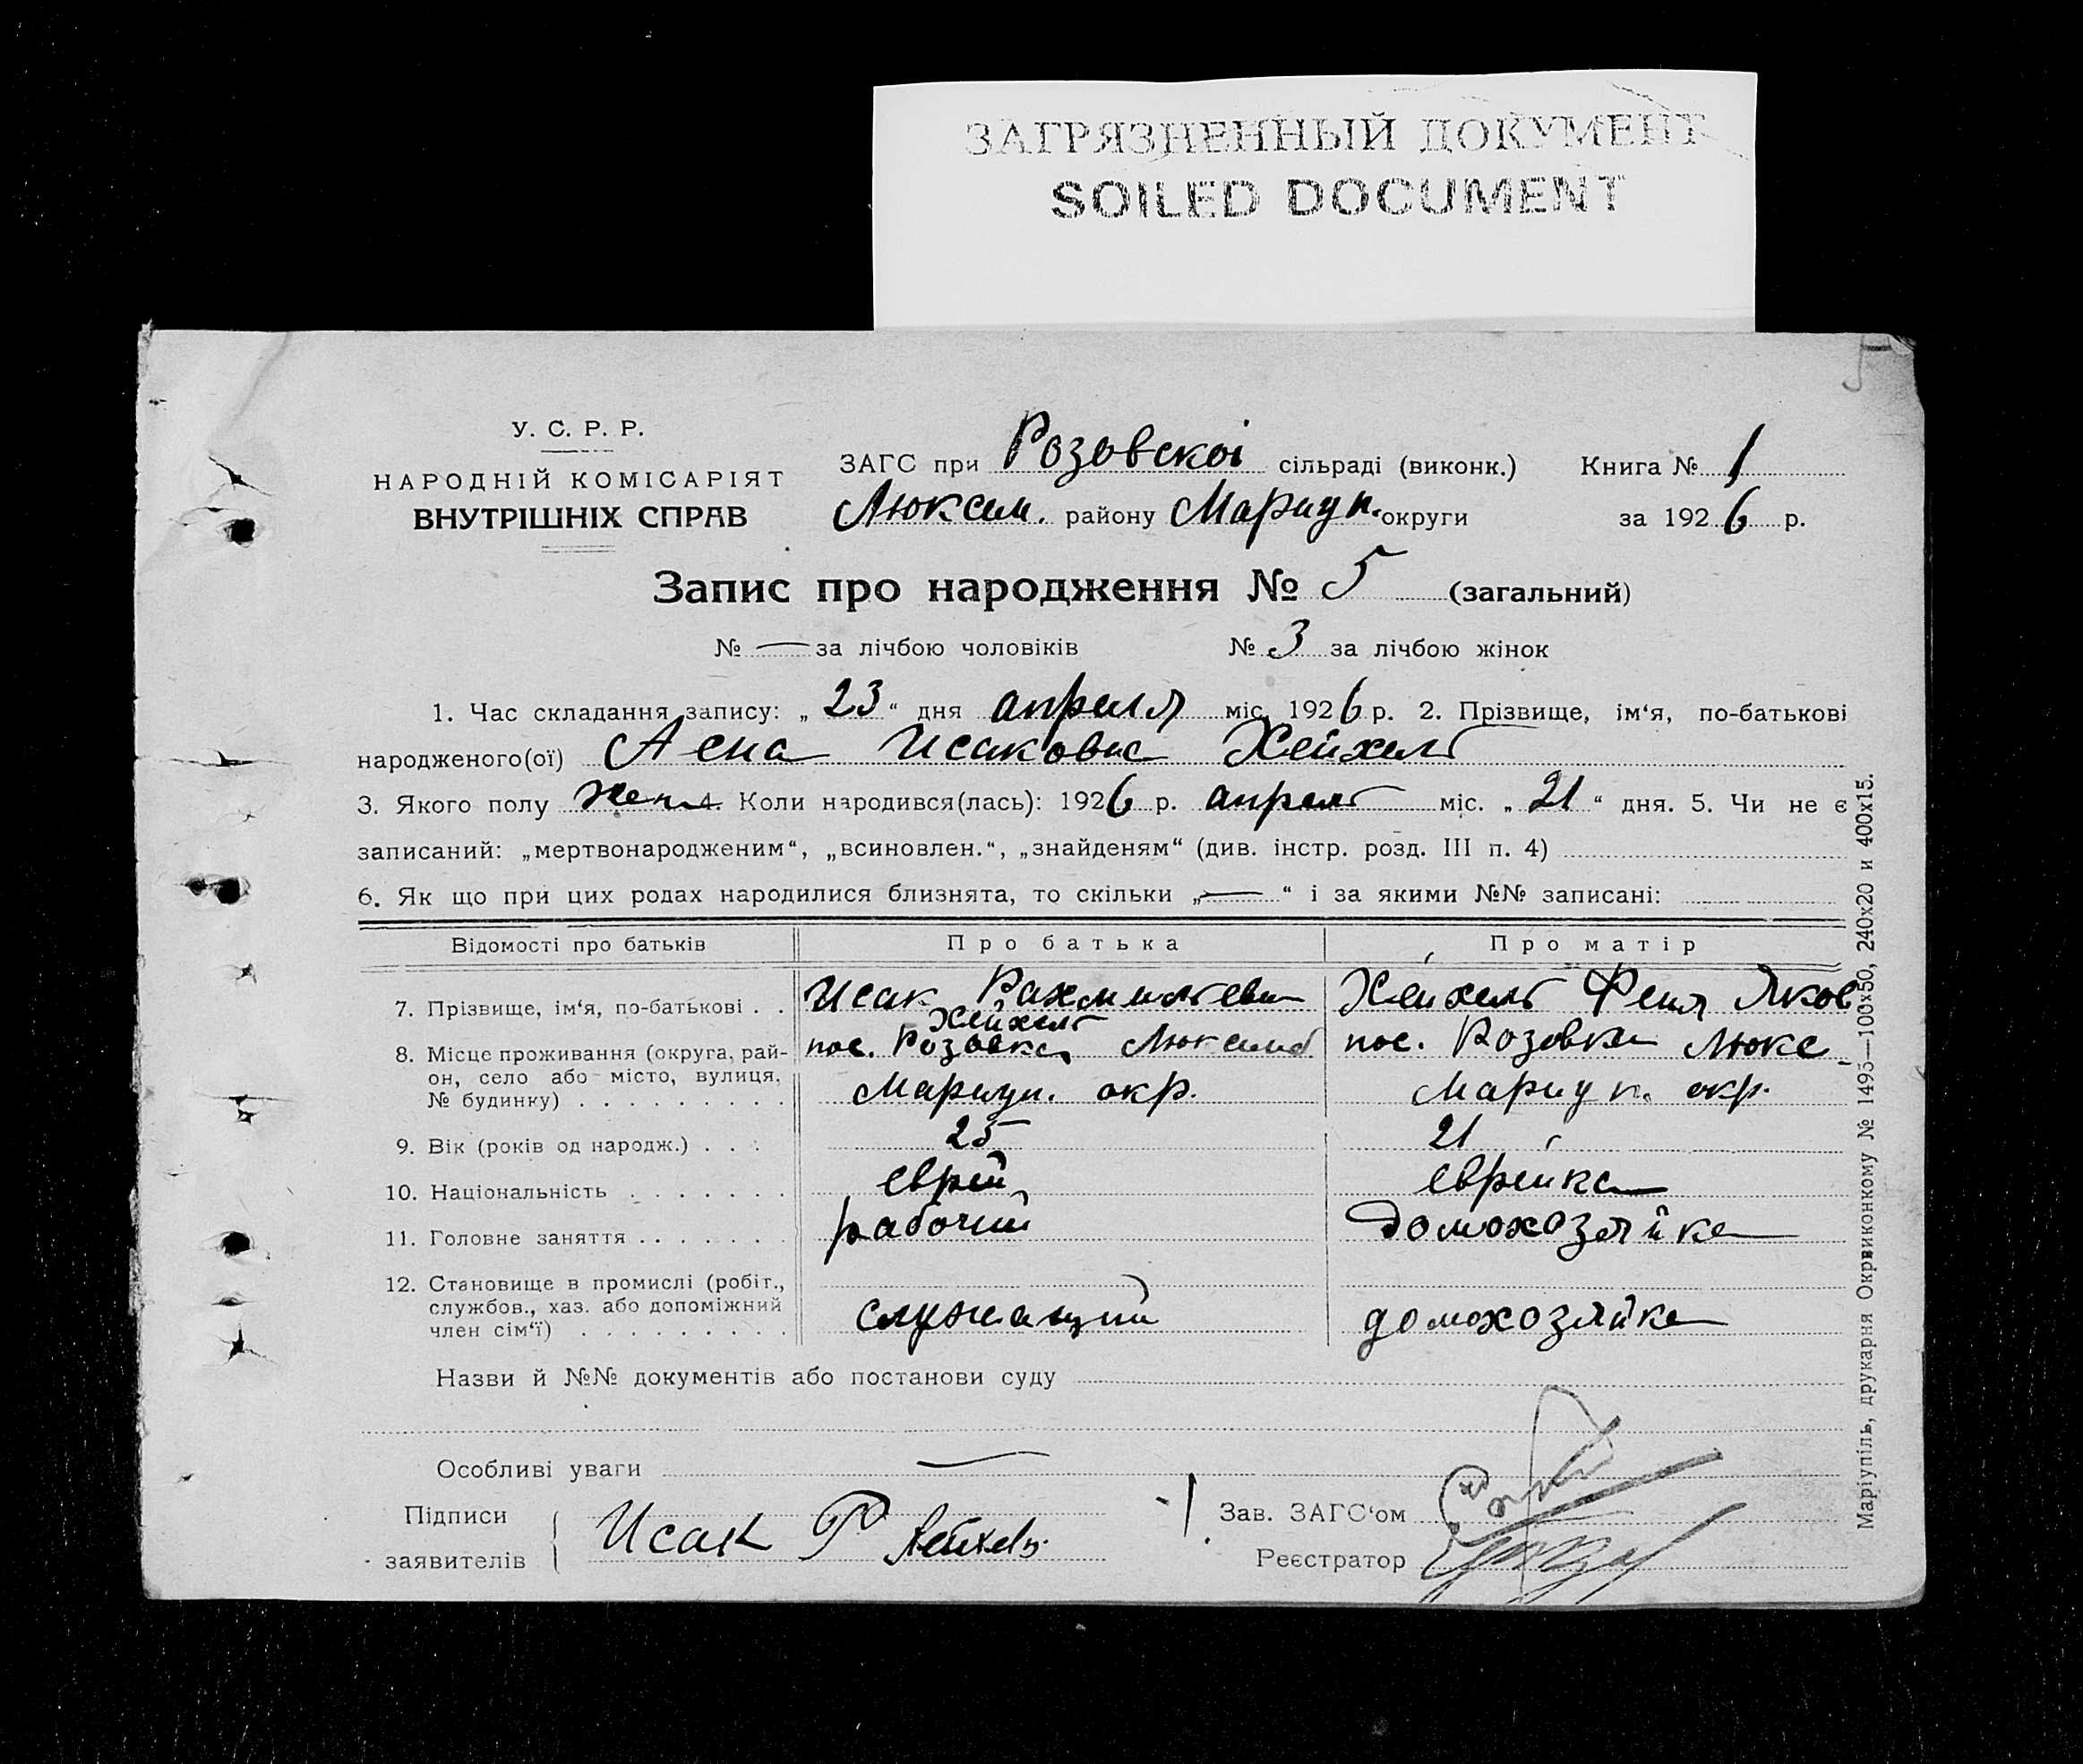 ЗАГРЯЗНЕННЫЙ ДОКУМЕНТ
SOILED DOCUMENT
5
У. С. Р. Р.
НАРОДНІЙ КОМІСАРІЯТ
ВНУТРІШНІХ СПРАВ
ЗАГС при Розовскоі сільраді (виконк.) Книга № 1
Люксем. району Мариуп. округи за 1926 р.
Запис про народження № 5 (загальний)
№ — за лічбою чоловіків № 3 за лічбою жінок
1. Час складання запису: „23“ дня апреля міс. 1926 р. 2. Прізвище, ім‘я, по-батькові
народженого(ої) Лена Исаковна Хейхель
3. Якого полу жен. 4. Коли народився(лась): 1926 р. апрель міс. „21“ дня. 5. Чи не є
записаний: „мертвонародженим“, „всиновлен.“, „знайденям“ (див. інстр. розд. III п. 4)
6. Як що при цих родах народилися близнята, то скільки „—“ і за якими №№ записані:
Відомості про батьків Про батька Про матір
7. Прізвище, ім‘я, по-батькові . . Исак Рахмильевич Хейхель Хейхель Феня Яков
8. Місце проживання (округа, рай- пос. Розовка Люксемб пос. Розовка Люкс
он, село або місто, вулиця,
№ будинку) . . . . . . . . . Мариуп. окр. Мариуп. окр.
9. Вік (років од народж.) . . . 25 21
10. Національність . . . . . . . еврей еврейка
11. Головне заняття . . . . . . . рабочий домохозяйка
12. Становище в промислі (робіт.,
службов., хаз. або допоміжний
член сім‘ї) . . . . . . . . . служащий домохозяйка
Назви й №№ документів або постанови суду
Особливі уваги —
Підписи
заявителів Исак Р Хейхель
Зав. ЗАГС‘ом
Реєстратор
Маріупіль, друкарня Окрвиконкому № 1495—100х50, 240х20 и 400х15.